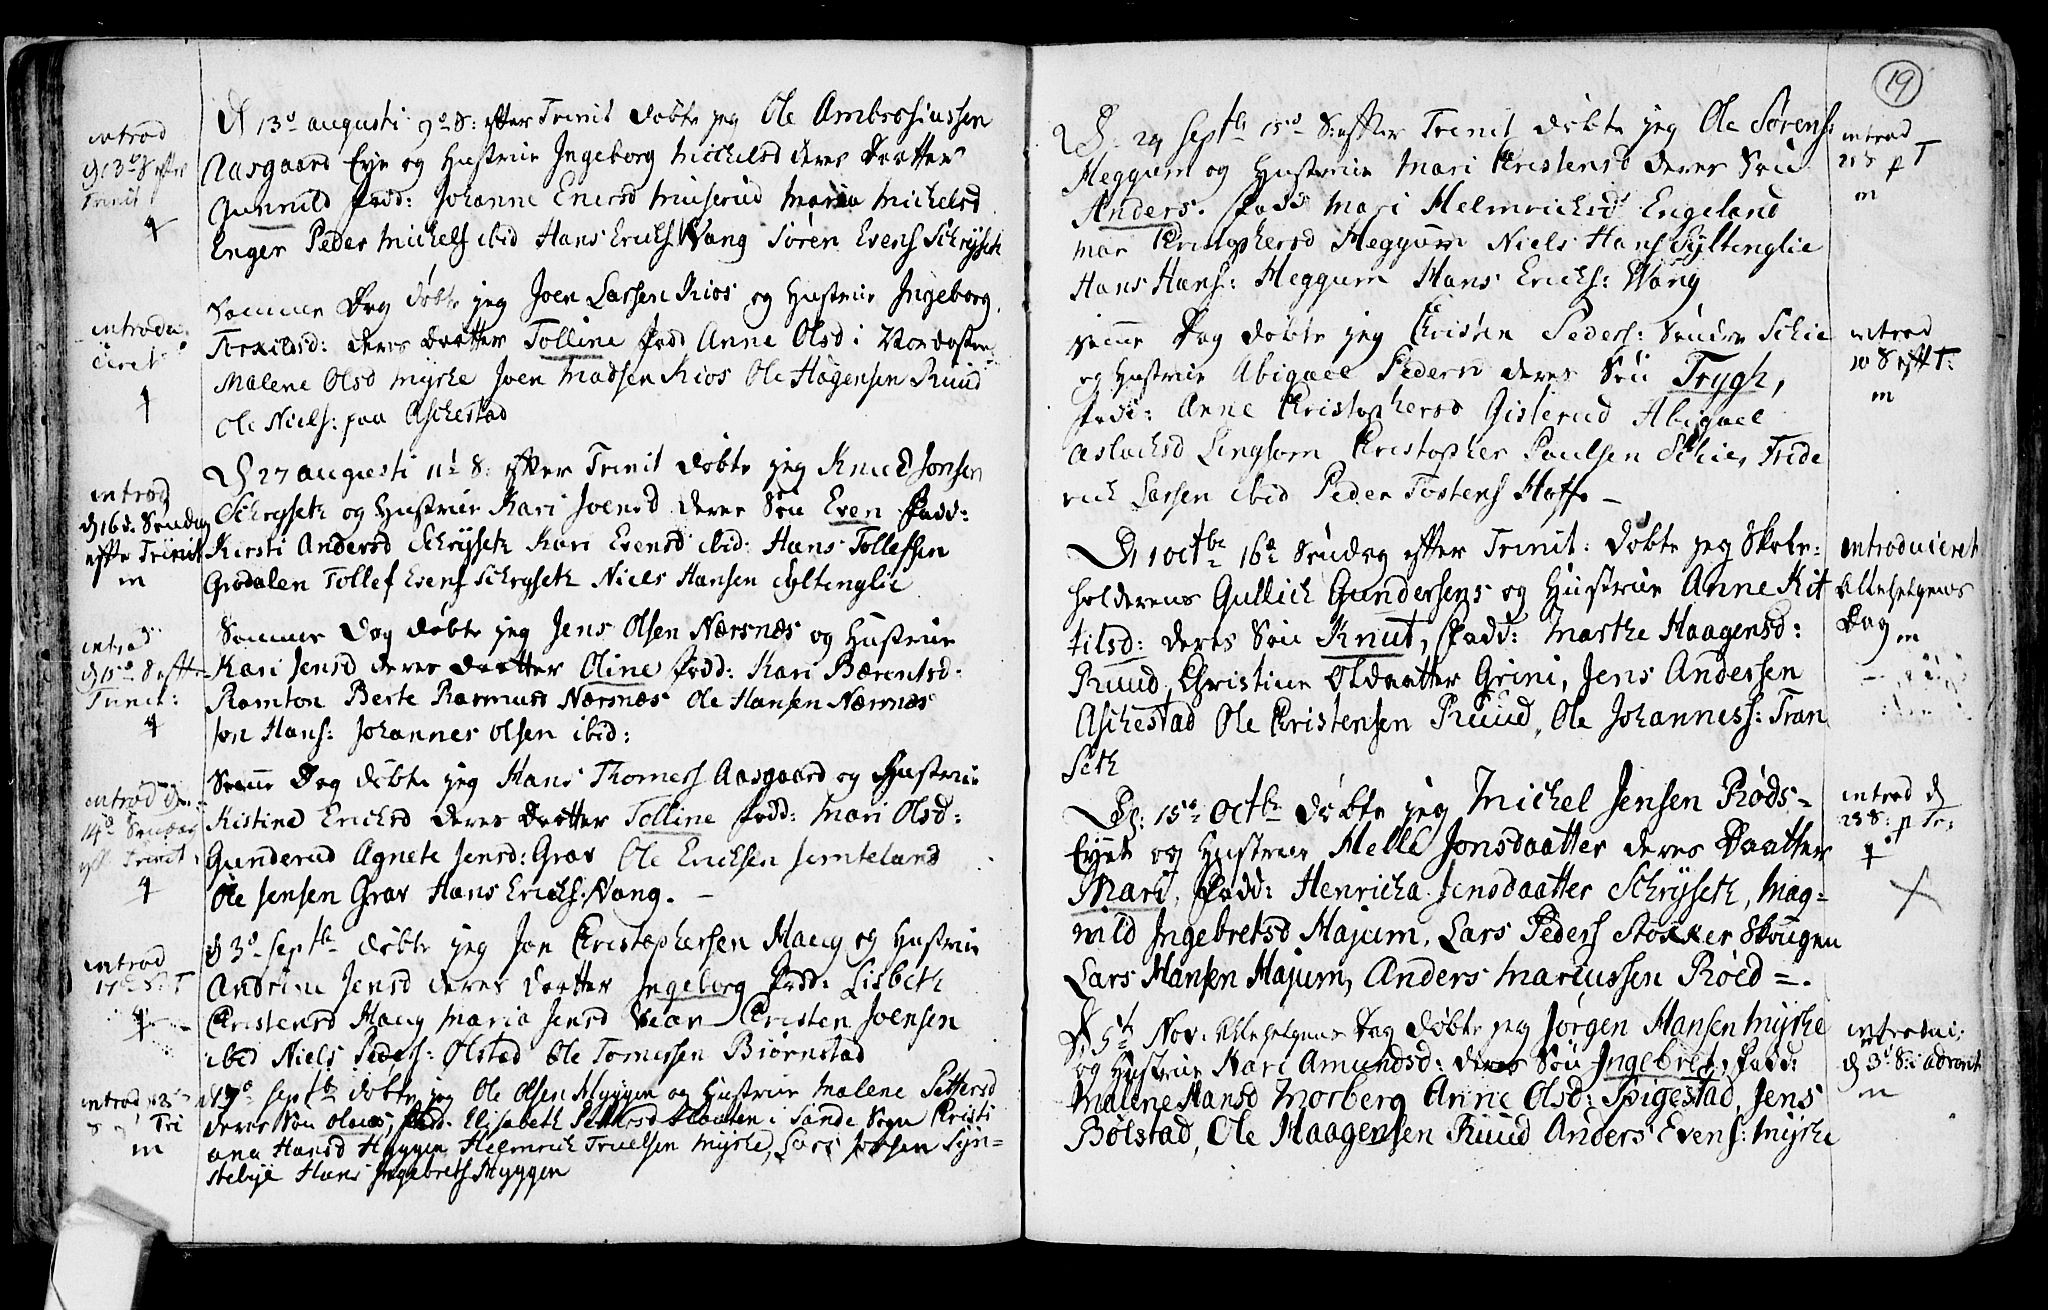 introd
d 13d S efter
Trinit
d 13d augusti 9d S: efter Trinit döbte jeg Ole Ambrosiussen
Aasgaard Eye og Hustrue Ingeborg Michelsd deres Daatter
Gunnild fadd: Johanne Enersd Muserud Maria Michelsd
Enger Peder Michels ibid Hans Erichs Wang Sören Evens Schrÿseth
introdu
ciret
Samme Dag döbte jeg Joen Larsen Kios og Hustrue Ingeborg
Terkildsd: deres Daatter Tolline fadd Anne Olsd i
Malene Olsd Myrhe Joen Madsen Kios Ole Hågensen Ruud
Ole Niels: paa Aschestad
introd
d 16d: Söndag
efter Trinit
m
D 27 augusti 11t S: efter Trinit döbte jeg Knud Jonsen
Schryseth og Hustrue Kari Joensd deres Sön Even fadd:
Kirsti Andersd Schrÿseth Kari Evensd ibid: Hans Tollefsen
Grodalen Tollef Evens Schryseth Niels Hansen Syltinglie
introd
d 15d S efter
Trinit:
Samme Dag döbte jeg Jens Olsen Næsnæs og Hustrue
Kari Jensd deres Daatter Oline fadd: Kari Bærentsd:
Ramton Berte Rasmusd Næsnæs Ole Hansen Næsnæs
Jon Hans: Johannes Olsen ibid:
introd den
14d Söndag
eft Trinit
Samme Dag döbte jeg Hans Thomess Aasgaard og Hustrue
Kistine Erichsd deres Daatter Tolline fadd: Mari Olsd:
Gunderud Agnete Jensd: Grav Ole Erichsen Jemteland
Ole Jensen Grav Hans Erichs: Wang. –
introd
17d S: T
d 3d Septb döbte jeg Jon Christophersen Haug og Hustrue
Andrine Jensd deres Daatter Ingeborg fadd: Lisbeth
Christensd Haug Maria Jensd Christen Joensen
ibid Niels Peders: Ölstad Ole Tomessen Biörnstad
introd
Tri
m
d 17d Septb döbte jeg Ole Olsen Hyggen og Hustrue Malene Pettersd
deres Sön Olaus, fadd: Elisabeth Pettersd i Sande Sogn Christi
ana Hansd Hyggen Helmrich Truelsen Myrhe, Lars Jobsen Syn-
stebye Hans Ingebrets Hyggen
19
D. 24 Septb 15d S: efter Trinit döbte jeg Ole Sörens:
Heggum og Hustrue Mari Christensd deres Sön
Anders. fadd Mari Helmrichsd Engeland
mar Christophersd Heggum Niels Hans Syltinglie
Hans Hans: Heggum Hans Erichs: Wang
introd
21 S p T
m
samme Dag döbte jeg Christen Peders: Söndre Schie
og Hustrue Abigael Pedersd deres Sön Trygh,
fadd: Anne Christophersd Gisterud Abigael
Aslachsd Lingsom Christopher Poulsen Schie, Fride
rich Larsen ibid Peder Tostens Hoff –
introd
20 S eft T:
m
D 1 Octbr 16d Söndag efter Trinit: döbte jeg Skole-
holderens Gullich Gundersens og Hustrue Anne Kit
tilsd: deres Sön Knut, fadd: Marthe Haagensd:
Ruud, Christine Oldaatter Grini, Jens Andersen
Aschestad Ole Christensen Ruud, Ole Johanness: Tran
seth
introduciret
Allehelgens
Dag m
D: 15d Octbr döbte jeg Michel Jensen Röds-
Eyet og Hustrue Helle Jonsdaatter deres Daatter
Mari, fadd: Henricha Jensdaatter Schrÿseth, Mag-
nild Ingebretsd Hajum, Lars Peders Stokker Skougen
Lars Hansen Hajum, Anders Marcussen Röed =.
introd d
23 S: p Tr:
D 5t Nov: Allehelgens Dag döbte jeg Jörgen Hansen Myrhe
og Hustrue Kari Amundsd: deres Sön Ingebret, fadd:
Malene Hansd Morberg Anne Olsd: Spigestad, Jens
Bölstad, Ole Haagensen Ruud Anders Evens: Myrhe
introdui:
d 3d S: i advent
m